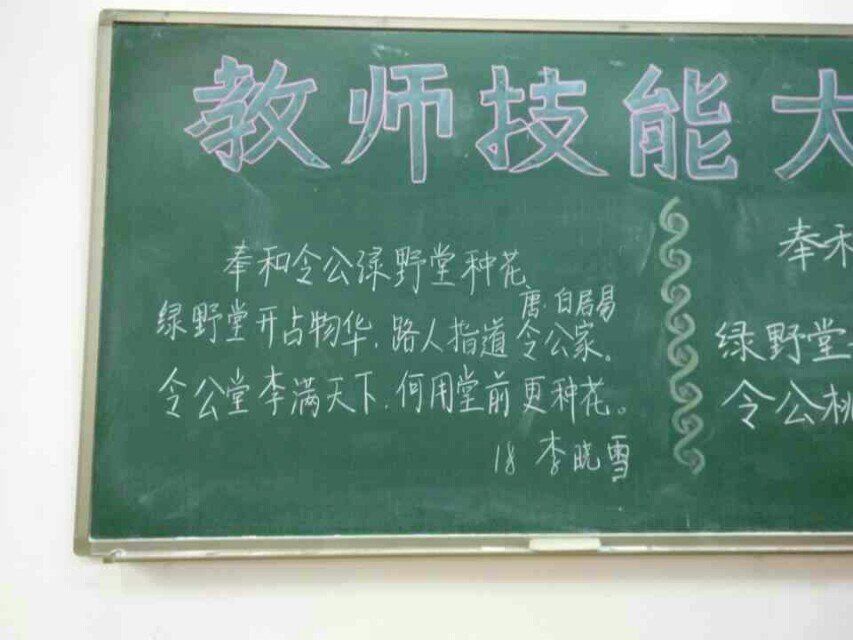 教师技能大
奉和令公绿野堂种花
唐·白居易
绿野堂开占物华，路人指道令公家。
令公堂李满天下，何用堂前更种花。
18 李晓雪
奉和
绿野堂
令公桃